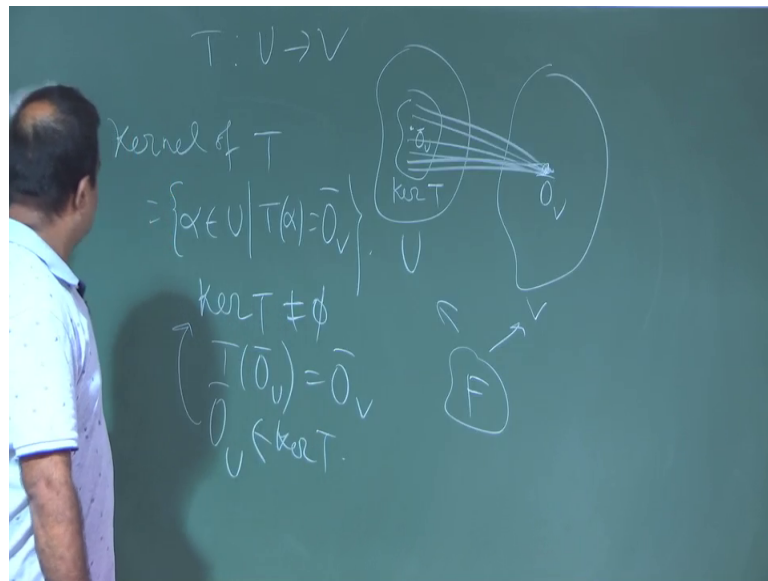 T : U → V
Kernel of T
= {α ∈ U | T(α) = 0̄_V}.
Ker T ≠ ϕ
T(0̄_U) = 0̄_V
0̄_U ∈ Ker T.
0̄_U
Ker T
U
0̄_V
V
F